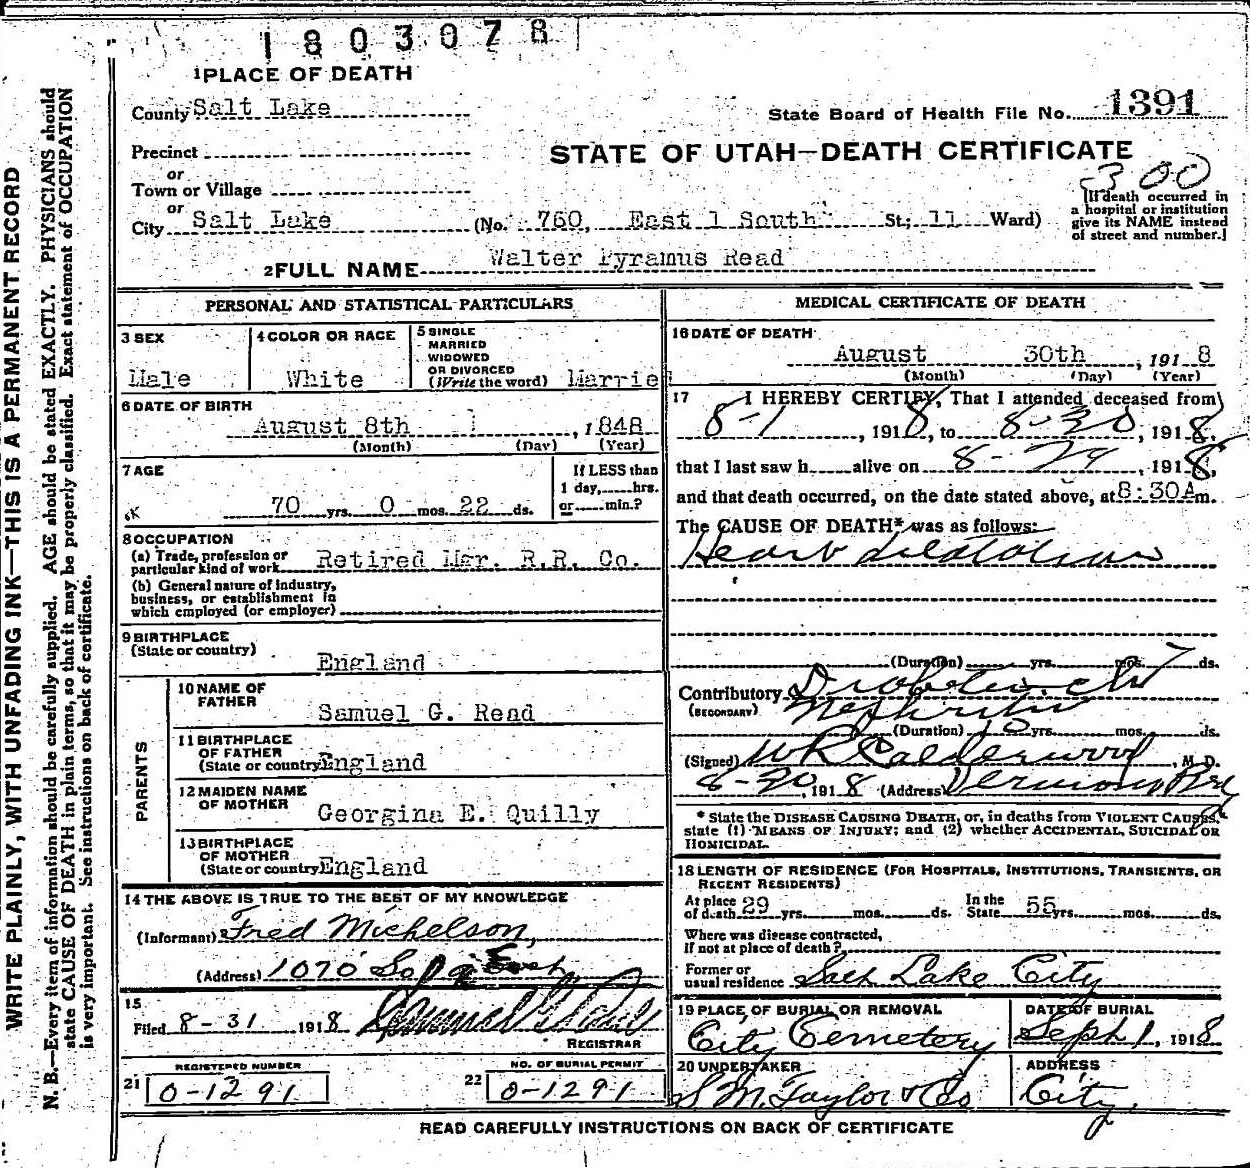 1803078
1 PLACE OF DEATH
County Salt Lake
State Board of Health File No. 1391
Precinct
or
Town or Village
or
City Salt Lake (No. 760, East 1 South St; 11 Ward)
STATE OF UTAH—DEATH CERTIFICATE
300
[If death occurred in
a hospital or institution
give its NAME instead
of street and number.]
2 FULL NAME Walter Pyramus Read
PERSONAL AND STATISTICAL PARTICULARS
3 SEX
Male
4 COLOR OR RACE
White
5 SINGLE
MARRIED
WIDOWED
OR DIVORCED
(Write the word) Marrie
6 DATE OF BIRTH
August 8th, 1848
(Month) (Day) (Year)
7 AGE
70 yrs. 0 mos. 22 ds.
If LESS than
1 day,......hrs.
or......min.?
8 OCCUPATION
(a) Trade, profession or
particular kind of work Retired Mgr. R.R. Co.
(b) General nature of industry,
business, or establishment in
which employed (or employer)
9 BIRTHPLACE
(State or country)
England
PARENTS
10 NAME OF
FATHER
Samuel G. Read
11 BIRTHPLACE
OF FATHER
(State or country) England
12 MAIDEN NAME
OF MOTHER
Georgina E. Quilly
13 BIRTHPLACE
OF MOTHER
(State or country) England
14 THE ABOVE IS TRUE TO THE BEST OF MY KNOWLEDGE
(Informant) Fred Michelson,
(Address) 1070 So 9 East
15
Filed 8-31 1918
REGISTRAR
REGISTERED NUMBER
21 0-1291
NO. OF BURIAL PERMIT
22 0-1291
MEDICAL CERTIFICATE OF DEATH
16 DATE OF DEATH
August 30th, 1918
(Month) (Day) (Year)
17 I HEREBY CERTIFY, That I attended deceased from
8-1, 1918, to 8-30, 1918,
that I last saw h......alive on 8-29, 1918,
and that death occurred, on the date stated above, at 8:30A m.
The CAUSE OF DEATH* was as follows:
Heart dilatation
(Duration) yrs. mos. 7 ds.
Contributory
(SECONDARY)
Nephritis
(Duration) 10 yrs. mos. ds.
(Signed) W R Calderwood, M.D.
8-30, 1918 (Address)
* State the DISEASE CAUSING DEATH, or, in deaths from VIOLENT CAUSES,
state (1) MEANS OF INJURY; and (2) whether ACCIDENTAL, SUICIDAL OR
HOMICIDAL.
18 LENGTH OF RESIDENCE (FOR HOSPITALS, INSTITUTIONS, TRANSIENTS, OR
RECENT RESIDENTS)
At place
of death 29 yrs. mos. ds. In the
State 55 yrs. mos. ds.
Where was disease contracted,
If not at place of death?
Former or
usual residence Salt Lake City
19 PLACE OF BURIAL OR REMOVAL
City Cemetery
DATE OF BURIAL
Sept 1, 1918
20 UNDERTAKER
S. M. Taylor & Co
ADDRESS
City.
READ CAREFULLY INSTRUCTIONS ON BACK OF CERTIFICATE
WRITE PLAINLY, WITH UNFADING INK—THIS IS A PERMANENT RECORD
N. B.—Every item of information should be carefully supplied. AGE should be stated EXACTLY. PHYSICIANS should
state CAUSE OF DEATH in plain terms, so that it may be properly classified. Exact statement of OCCUPATION
is very important. See instructions on back of certificate.